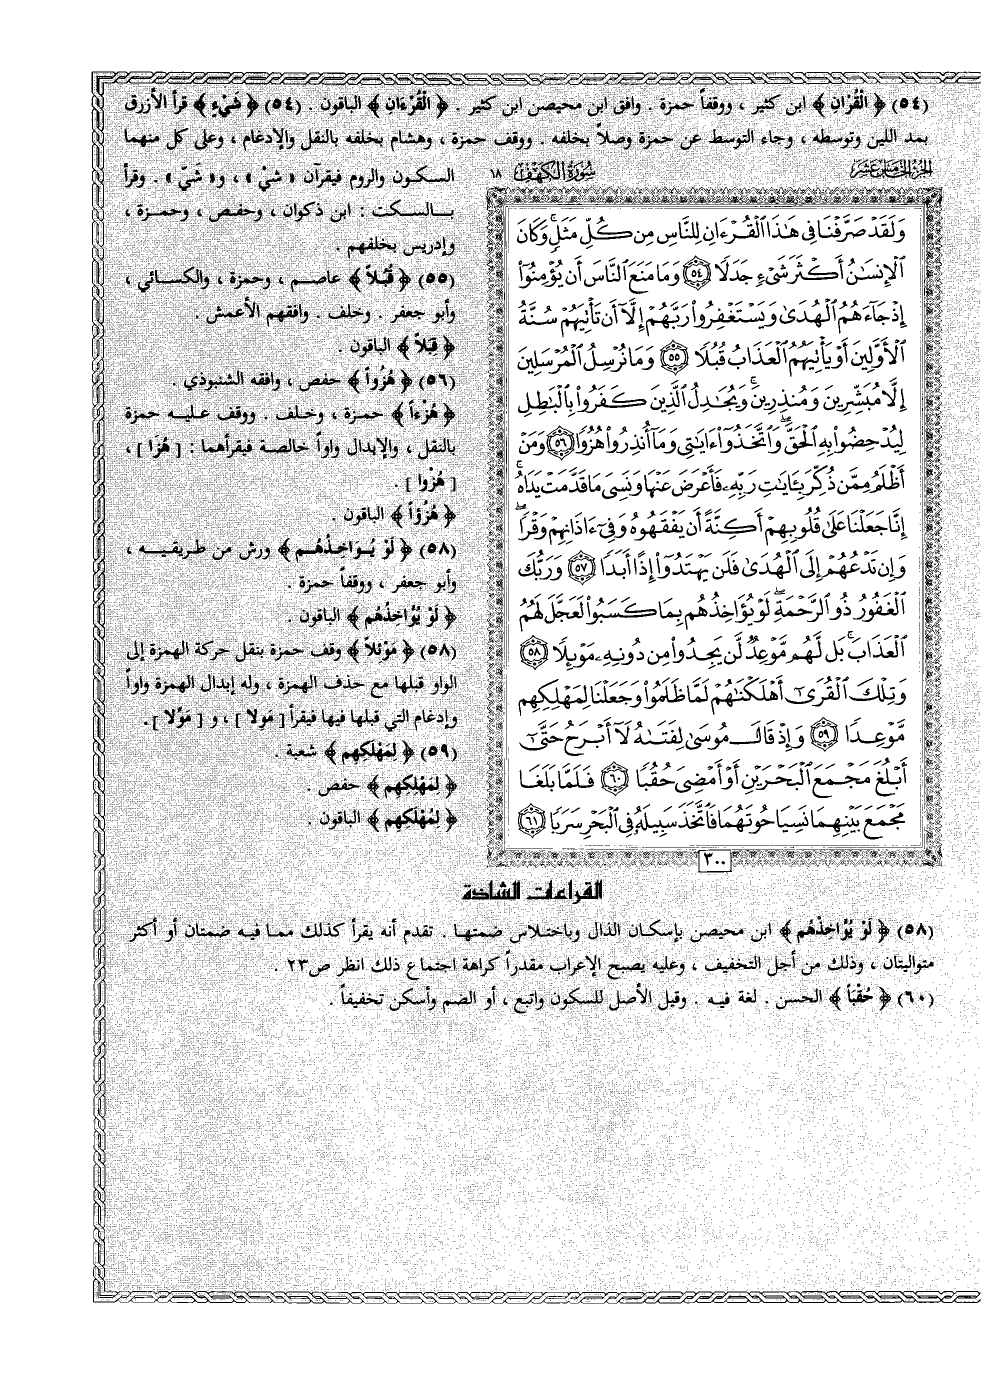 (٥٤) ﴿ الْقُرَانِ ﴾ ابن كثير ، ووقفاً حمزة . وافق ابن محيصن ابن كثير . ﴿ الْقُرْءَانِ ﴾ الباقون . (٥٤) ﴿ شَيْءٍ ﴾ قرأ الأزرق
بمد اللين وتوسطه ، وجاء التوسط عن حمزة وصلاً بخلفه . ووقف حمزة ، وهشام بخلفه بالنقل والإدغام ، وعلى كل منهما
السكون والروم فيقرآن « شيْ » ، و« شَيّ » . وقرأ
بالسكت : ابن ذكوان ، وحفص ، وحمزة ،
وإدريس بخلفهم .
(٥٥) ﴿ قُبُلاً ﴾ عاصم ، وحمزة ، والكسائي ،
وأبو جعفر . وخلف . وافقهم الأعمش .
﴿ قِبَلاً ﴾ الباقون .
(٥٦) ﴿ هُزُواً ﴾ حفص ، وافقه الشنبوذي .
﴿ هُزْءاً ﴾ حمزة ، وخلف . ووقف عليه حمزة
بالنقل ، والإبدال واواً خالصة فيقرأهما : [ هُزَا ] ،
[ هُزْوا ] .
﴿ هُزُؤاً ﴾ الباقون .
(٥٨) ﴿ لَوْ يُوَاخِذُهُم ﴾ ورش من طريقيه ،
وأبو جعفر ، ووقفاً حمزة .
﴿ لَوْ يُؤَاخِذُهُم ﴾ الباقون .
(٥٨) ﴿ مَوْئِلاً ﴾ وقف حمزة بنقل حركة الهمزة إلى
الواو قبلها مع حذف الهمزة ، وله إبدال الهمزة واواً
وإدغام التي قبلها فيها فيقرأ [ مَوِلا ] ، و [ مَوِّلا ] .
(٥٩) ﴿ لِمَهْلَكِهِم ﴾ شعبة .
﴿ لِمَهْلِكِهِم ﴾ حفص .
﴿ لِمُهْلَكِهِم ﴾ الباقون .
الجزء الخامس عشر
سورة الكهف ١٨
وَلَقَدْ صَرَّفْنَا فِي هَٰذَا الْقُرْءَانِ لِلنَّاسِ مِن كُلِّ مَثَلٍ ۚ وَكَانَ
الْإِنسَٰنُ أَكْثَرَ شَيْءٍ جَدَلًا ٥٤ وَمَا مَنَعَ النَّاسَ أَن يُؤْمِنُوا
إِذْ جَآءَهُمُ الْهُدَىٰ وَيَسْتَغْفِرُوا رَبَّهُمْ إِلَّآ أَن تَأْتِيَهُمْ سُنَّةُ
الْأَوَّلِينَ أَوْ يَأْتِيَهُمُ الْعَذَابُ قُبُلًا ٥٥ وَمَا نُرْسِلُ الْمُرْسَلِينَ
إِلَّا مُبَشِّرِينَ وَمُنذِرِينَ ۚ وَيُجَٰدِلُ الَّذِينَ كَفَرُوا بِالْبَٰطِلِ
لِيُدْحِضُوا بِهِ الْحَقَّ ۖ وَاتَّخَذُوٓا ءَايَٰتِي وَمَآ أُنذِرُوا هُزُوًا ٥٦ وَمَنْ
أَظْلَمُ مِمَّن ذُكِّرَ بِـَٔايَٰتِ رَبِّهِۦ فَأَعْرَضَ عَنْهَا وَنَسِيَ مَا قَدَّمَتْ يَدَاهُ ۚ
إِنَّا جَعَلْنَا عَلَىٰ قُلُوبِهِمْ أَكِنَّةً أَن يَفْقَهُوهُ وَفِيٓ ءَاذَانِهِمْ وَقْرًا ۖ
وَإِن تَدْعُهُمْ إِلَى الْهُدَىٰ فَلَن يَهْتَدُوٓا إِذًا أَبَدًا ٥٧ وَرَبُّكَ
الْغَفُورُ ذُو الرَّحْمَةِ ۖ لَوْ يُؤَاخِذُهُم بِمَا كَسَبُوا لَعَجَّلَ لَهُمُ
الْعَذَابَ ۚ بَل لَّهُم مَّوْعِدٌ لَّن يَجِدُوا مِن دُونِهِۦ مَوْئِلًا ٥٨
وَتِلْكَ الْقُرَىٰٓ أَهْلَكْنَٰهُمْ لَمَّا ظَلَمُوا وَجَعَلْنَا لِمَهْلِكِهِم
مَّوْعِدًا ٥٩ وَإِذْ قَالَ مُوسَىٰ لِفَتَىٰهُ لَآ أَبْرَحُ حَتَّىٰٓ
أَبْلُغَ مَجْمَعَ الْبَحْرَيْنِ أَوْ أَمْضِيَ حُقُبًا ٦٠ فَلَمَّا بَلَغَا
مَجْمَعَ بَيْنِهِمَا نَسِيَا حُوتَهُمَا فَاتَّخَذَ سَبِيلَهُۥ فِي الْبَحْرِ سَرَبًا ٦١
٣٠٠
القراءات الشاذة
(٥٨) ﴿ لَوْ يُؤَاخِذْهُم ﴾ ابن محيصن بإسكان الذال وباختلاس ضمتها . تقدم أنه يقرأ كذلك مما فيه ضمتان أو أكثر
متواليتان ، وذلك من أجل التخفيف ، وعليه يصبح الإعراب مقدراً كراهة اجتماع ذلك انظر ص٢٣ .
(٦٠) ﴿ حُقْبَاً ﴾ الحسن . لغة فيه . وقيل الأصل للسكون واتبع ، أو الضم وأسكن تخفيفاً .